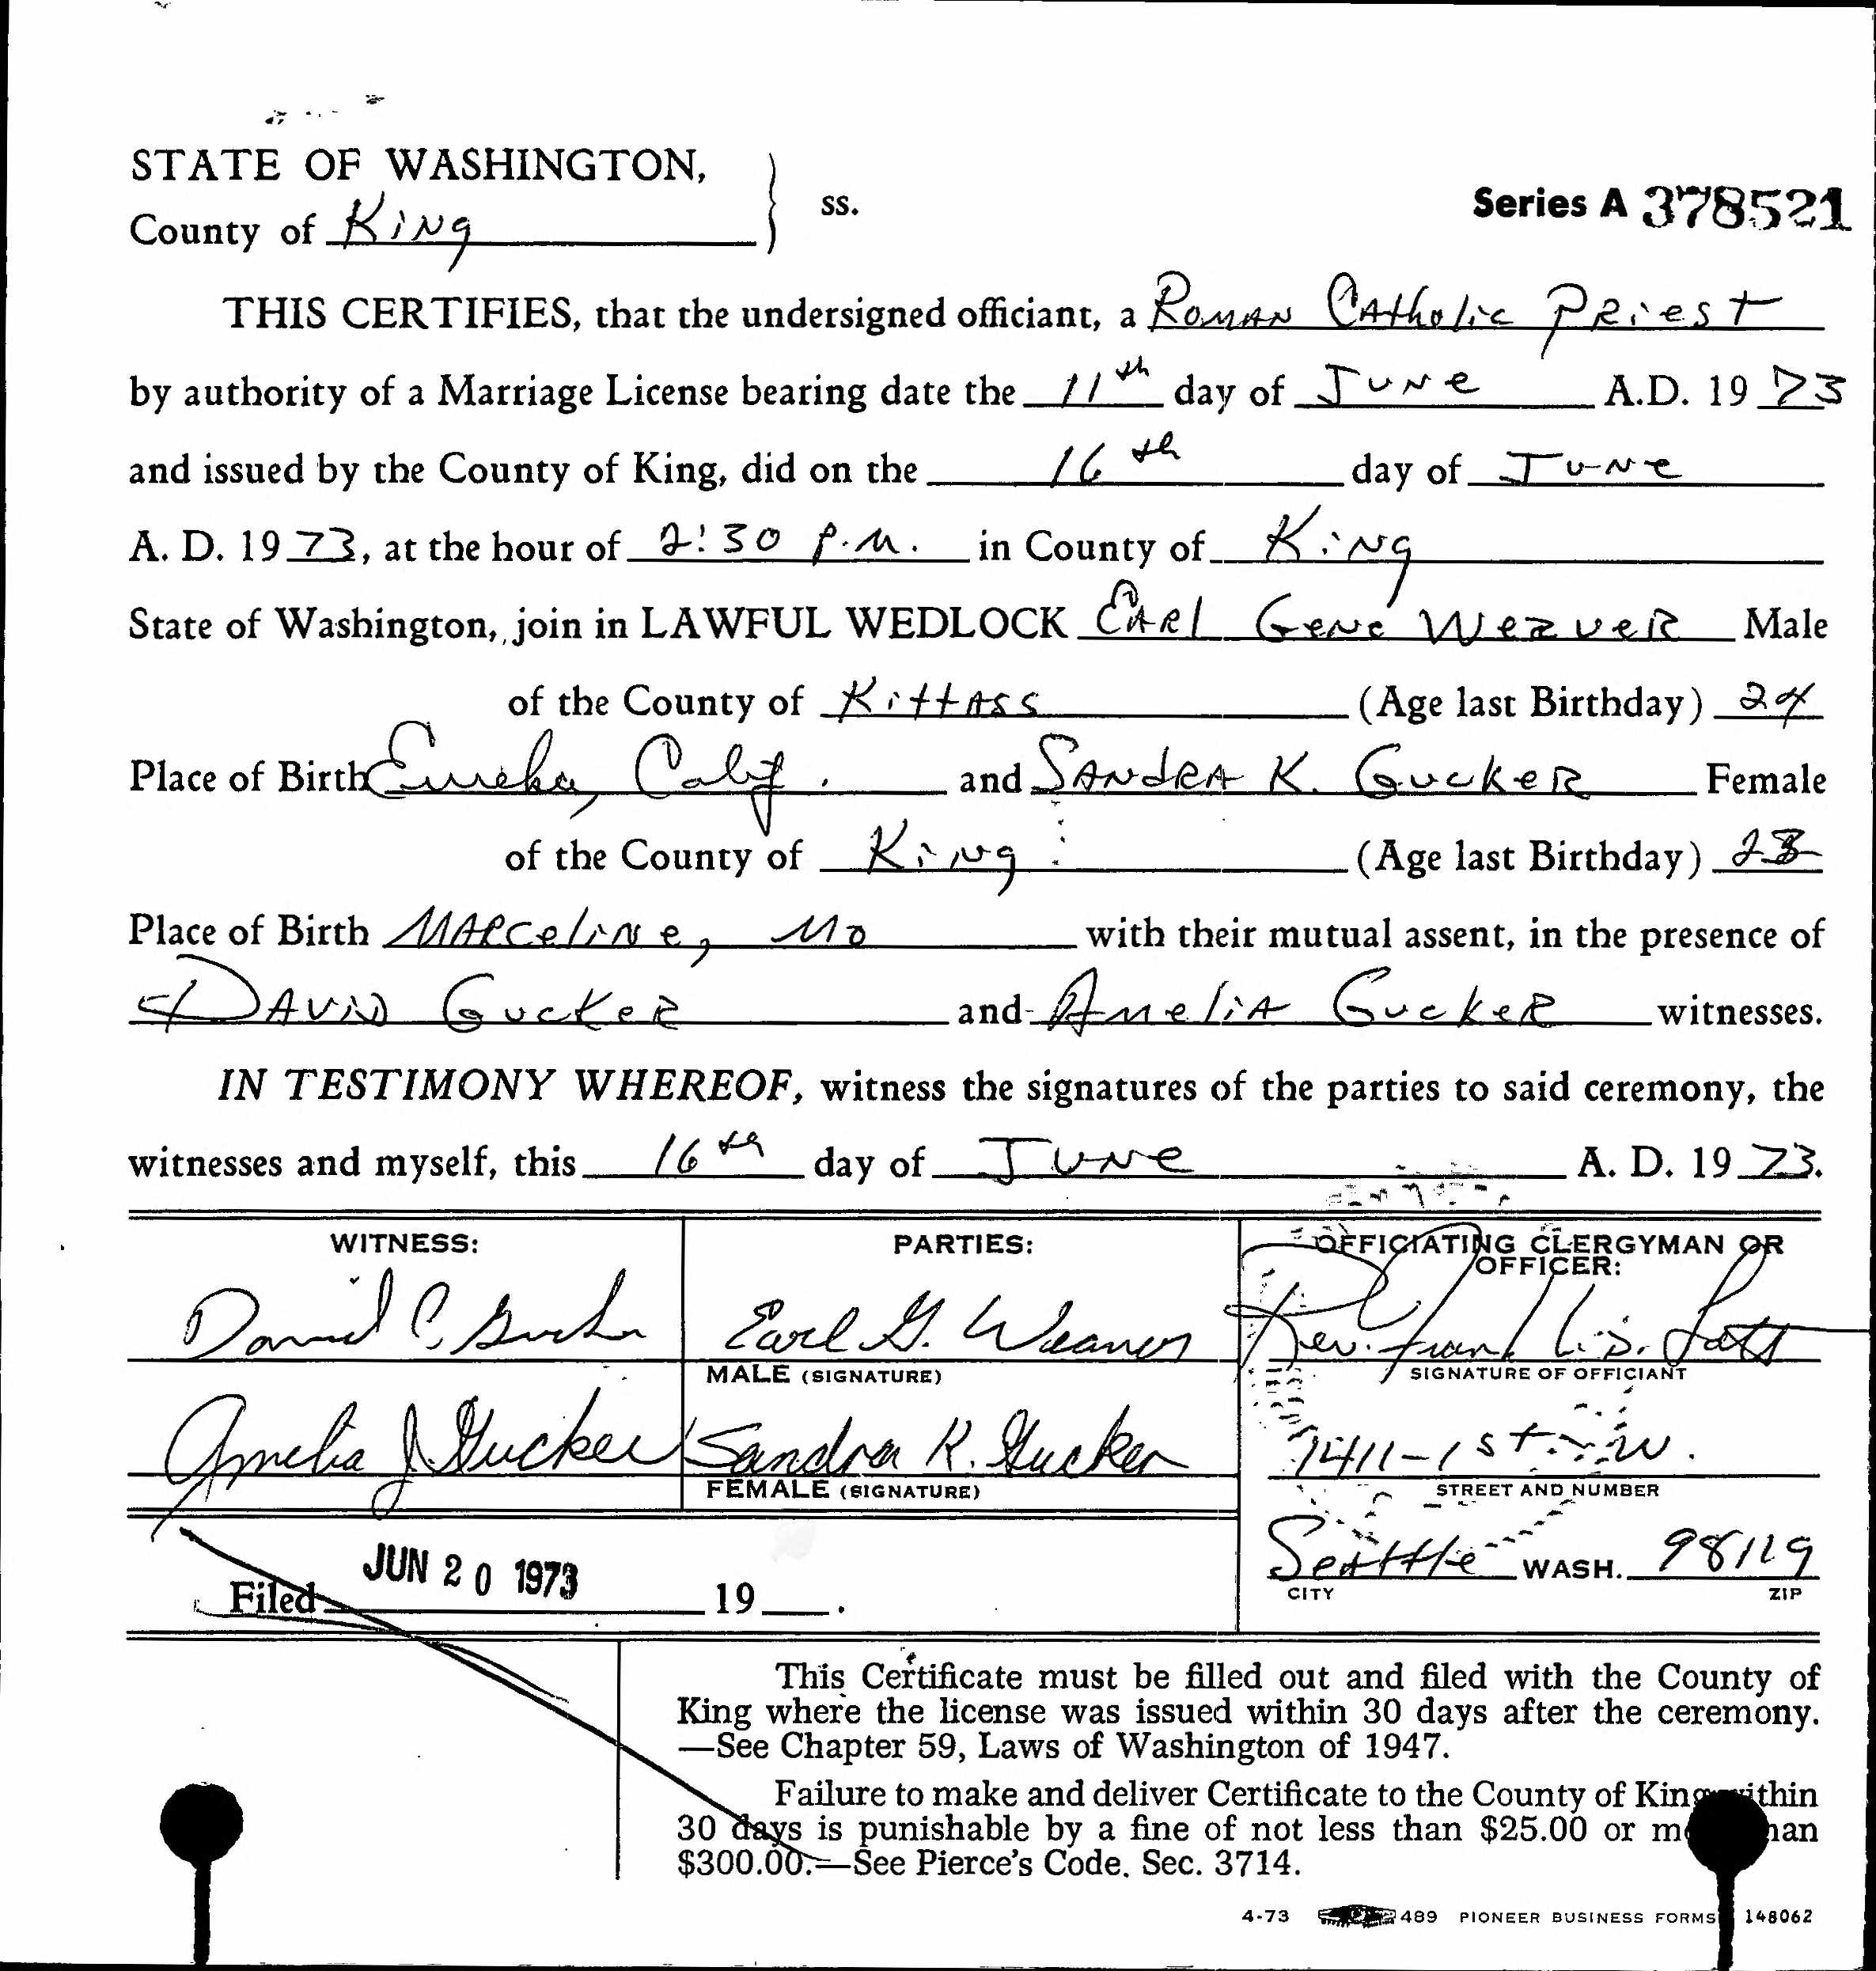 STATE OF WASHINGTON,
County of King
ss.
Series A 378521
THIS CERTIFIES, that the undersigned officiant, a Roman Catholic Priest
by authority of a Marriage License bearing date the 11th day of June A.D. 19 73
and issued by the County of King, did on the 16th day of June
A. D. 19 73, at the hour of 2:30 P.M. in County of King
State of Washington, join in LAWFUL WEDLOCK Earl Gene Weaver Male
of the County of Kittass (Age last Birthday) 24
Place of Birth Eureka, Calif. and Sandra K. Gucker Female
of the County of King (Age last Birthday)
Place of Birth Marceline, Mo with their mutual assent, in the presence of
David Gucker and Amelia Gucker witnesses.
IN TESTIMONY WHEREOF, witness the signatures of the parties to said ceremony, the
witnesses and myself, this 16th day of June A. D. 19 73.
WITNESS: PARTIES: OFFICIATING CLERGYMAN OR OFFICER:
David C. Gucker Earl G. Weaver Rev. Frank
MALE (SIGNATURE) SIGNATURE OF OFFICIANT
Amelia J Gucker Sandra K. Gucker 1411-1st W.
FEMALE (SIGNATURE) STREET AND NUMBER
Seattle WASH. 98119
CITY ZIP
Filed JUN 20 1973 19 .
This Certificate must be filled out and filed with the County of
King where the license was issued within 30 days after the ceremony.
—See Chapter 59, Laws of Washington of 1947.
Failure to make and deliver Certificate to the County of King within
30 days is punishable by a fine of not less than $25.00 or
$300.00.—See Pierce's Code. Sec. 3714.
4-73 489 PIONEER BUSINESS FORMS 148062